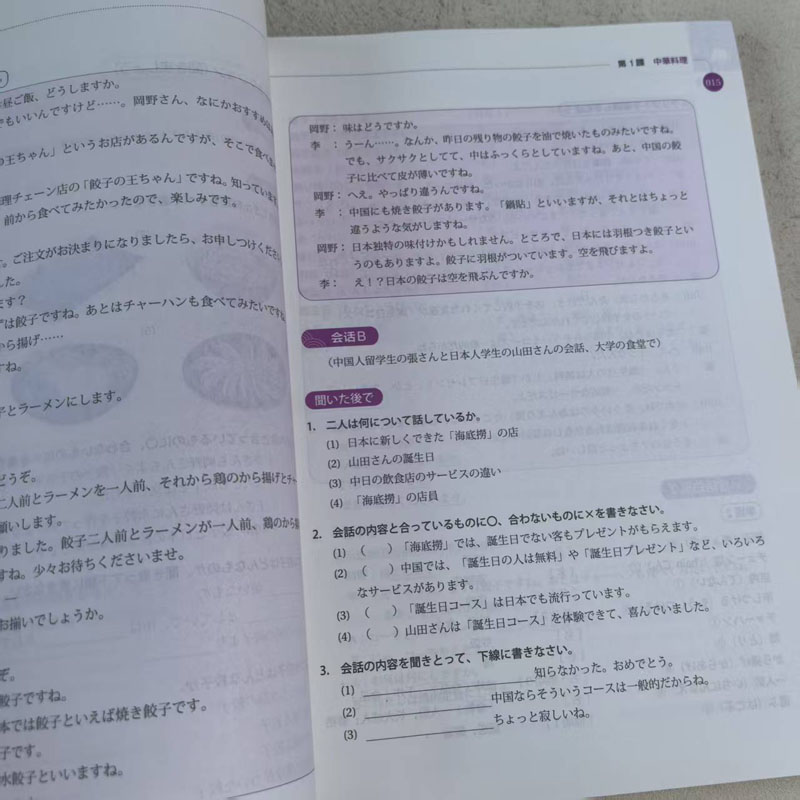 昼ご飯、どうしますか。
でもいいんですけど……。岡野さん、なにかおすすめ
の王ちゃん」というお店があるんですが、そこで食べ
理チェーン店の「餃子の王ちゃん」ですね。知っていま
前から食べてみたかったので、楽しみです。
。ご注文がお決まりになりましたら、お申しつけくださ
した。
ます？
ずは餃子ですね。あとはチャーハンも食べてみたいです
から揚げ……
すね。
子とラーメンにします。
どうぞ。
二人前とラーメンを一人前、それから鶏のから揚げとチャ
願いします。
りました。餃子二人前とラーメンが一人前、鶏のから
すね。少々お待ちくださいませ。
お揃いでしょうか。
ぞ。
餃子ですね。
本では餃子といえば焼き餃子です。
子です。
水餃子といいますね。
第1課 中華料理
015
岡野：味はどうですか。
李：うーん……。なんか、昨日の残り物の餃子を油で焼いたものみたいですね。
でも、サクサクとしてて、中はふっくらとしていますね。あと、中国の餃
子に比べて皮が薄いですね。
岡野：へえ。やっぱり違うんですね。
李：中国にも焼き餃子があります。「鍋貼」といいますが、それとはちょっと
違うような気がしますね。
岡野：日本独特の味付けかもしれません。ところで、日本には羽根つき餃子とい
うのもありますよ。餃子に羽根がついています。空を飛びますよ。
李：え！？日本の餃子は空を飛ぶんですか。
会话B
（中国人留学生の張さんと日本人学生の山田さんの会話、大学の食堂で）
聞いた後で
1. 二人は何について話しているか。
(1) 日本に新しくできた「海底撈」の店
(2) 山田さんの誕生日
(3) 中日の飲食店のサービスの違い
(4) 「海底撈」の店員
2. 会話の内容と合っているものに○、合わないものに×を書きなさい。
(1) （　）「海底撈」では、誕生日でない客もプレゼントがもらえます。
(2) （　）中国では、「誕生日の人は無料」や「誕生日プレゼント」など、いろいろ
なサービスがあります。
(3) （　）「誕生日コース」は日本でも流行っています。
(4) （　）山田さんは「誕生日コース」を体験できて、喜んでいました。
3. 会話の内容を聞きとって、下線に書きなさい。
(1) ＿＿＿＿＿＿＿＿知らなかった。おめでとう。
(2) ＿＿＿＿＿＿中国ならそういうコースは一般的だからね。
(3) ＿＿＿＿＿＿ちょっと寂しいね。